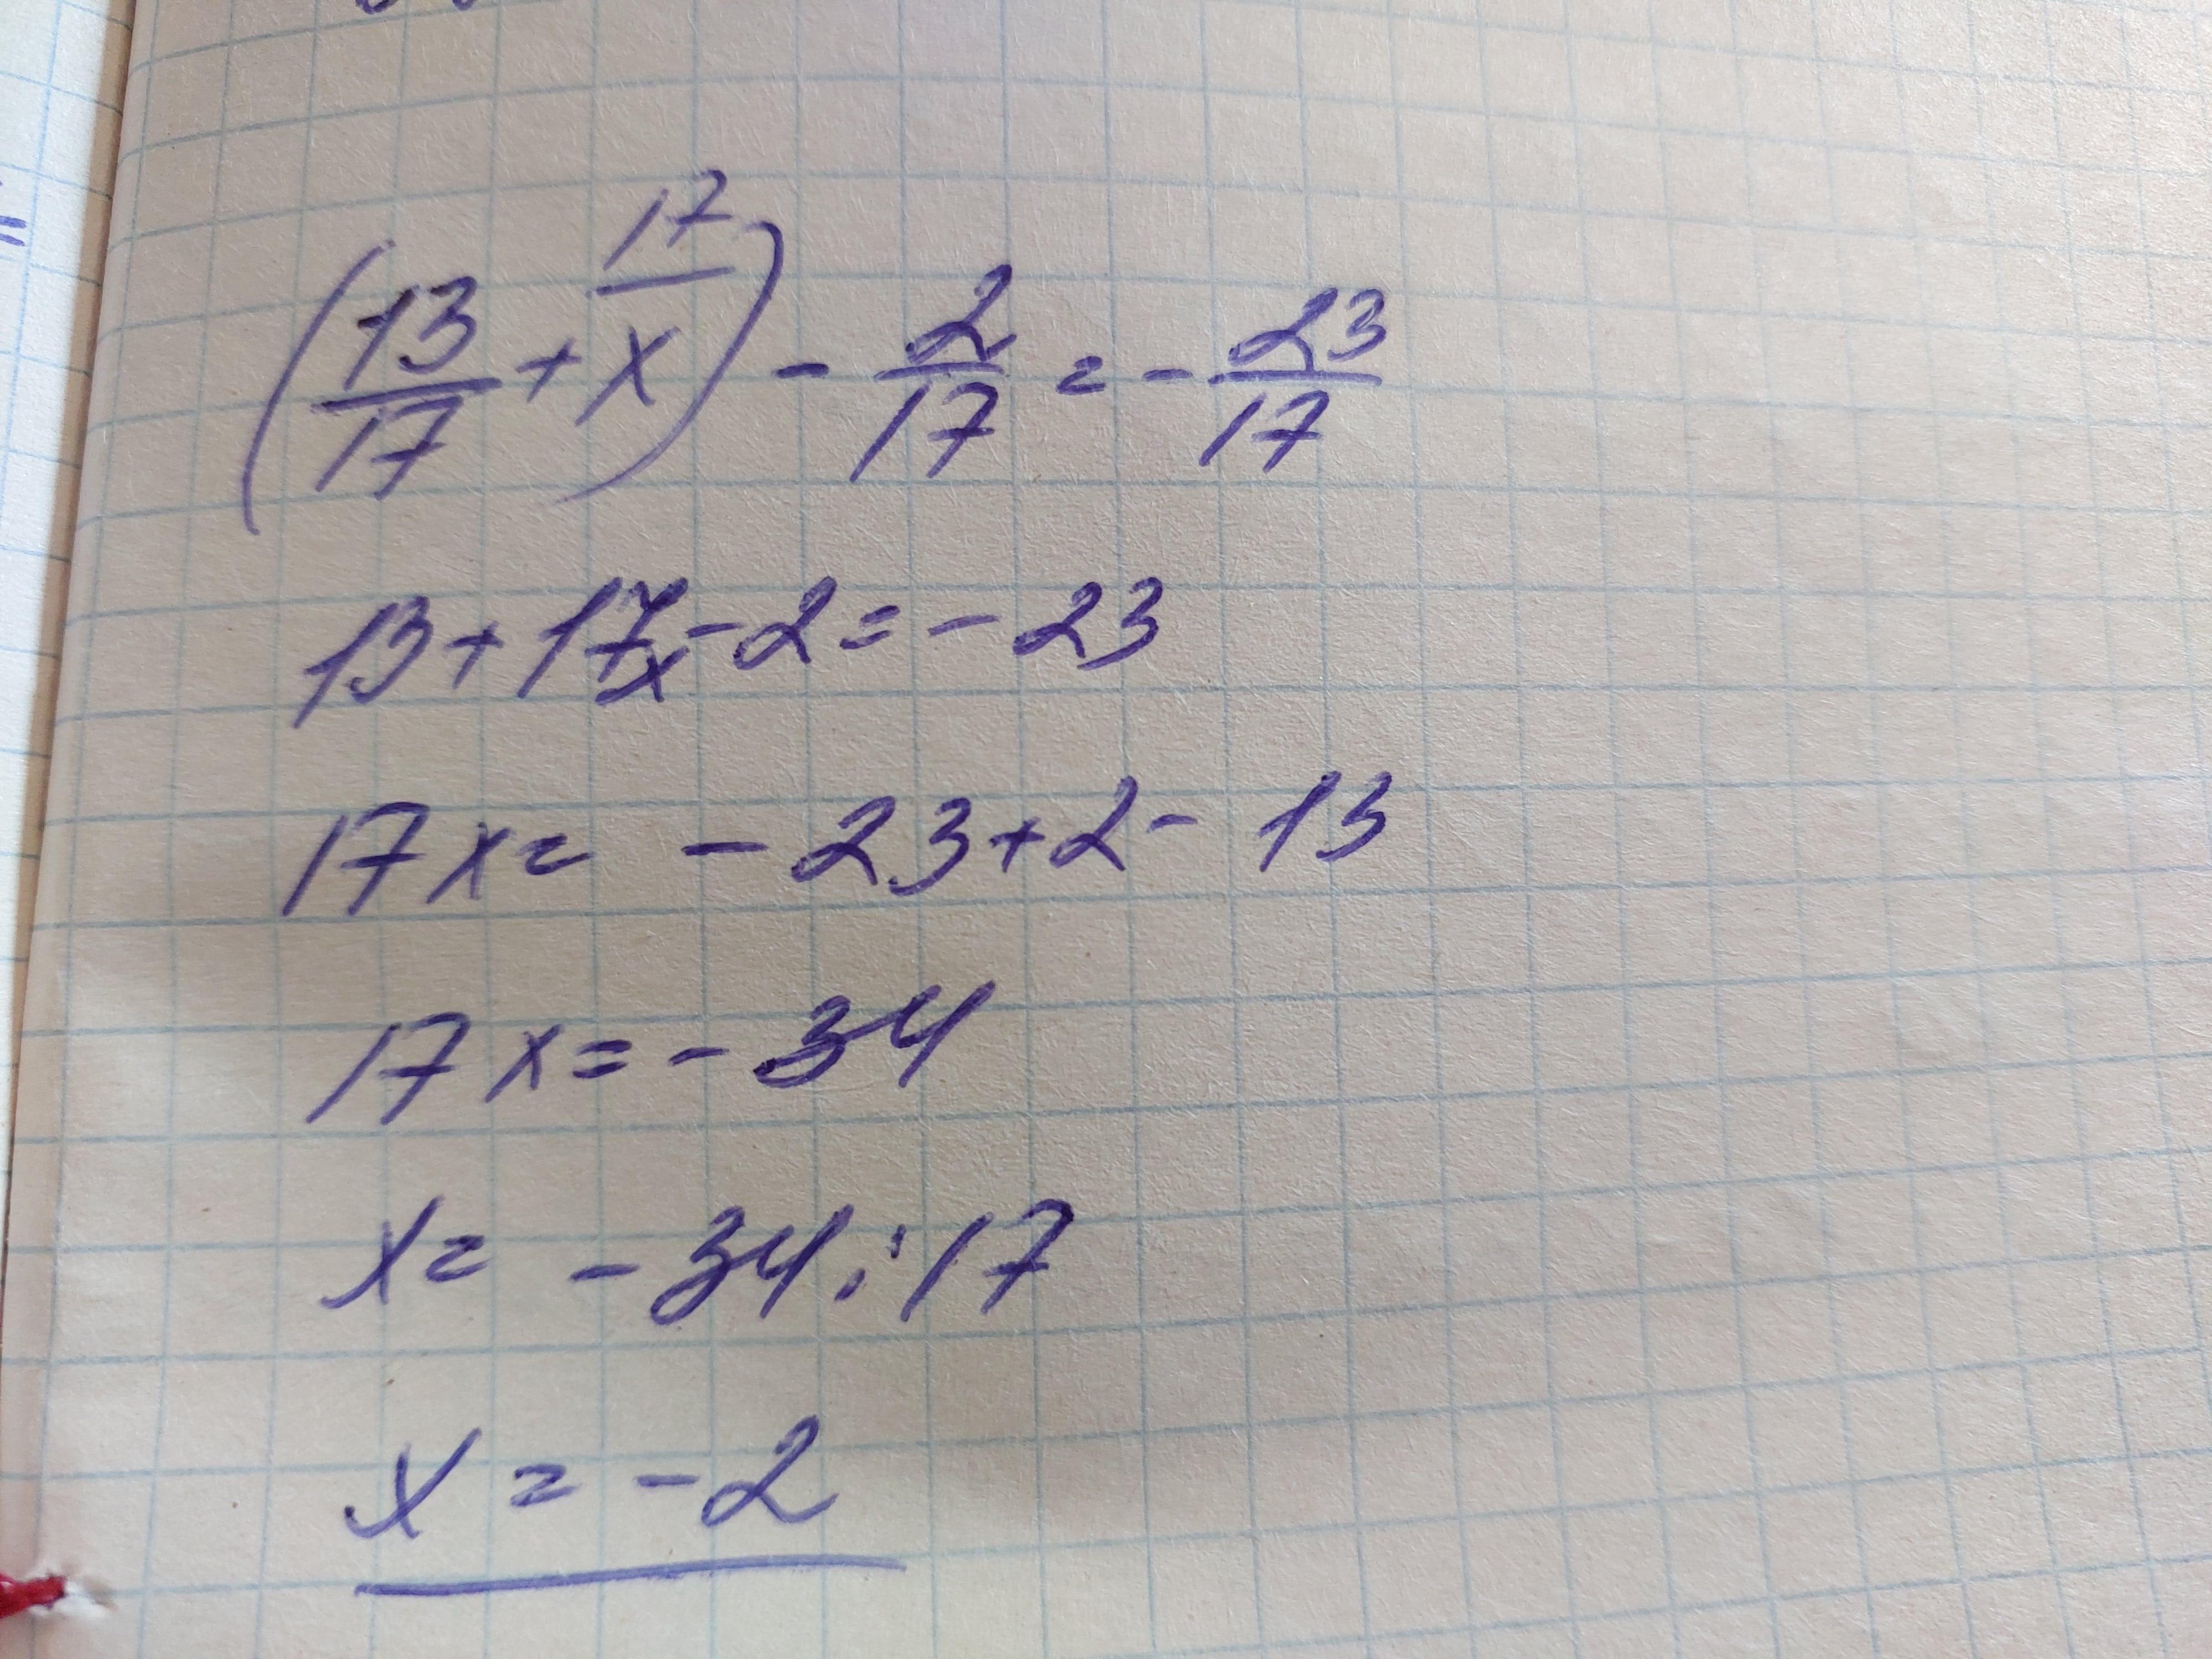 (13/17 + 17/x) - 2/17 = - 23/17
13 + 17x - 2 = - 23
17x = - 23 + 2 - 13
17x = - 34
x = - 34 : 17
x = - 2